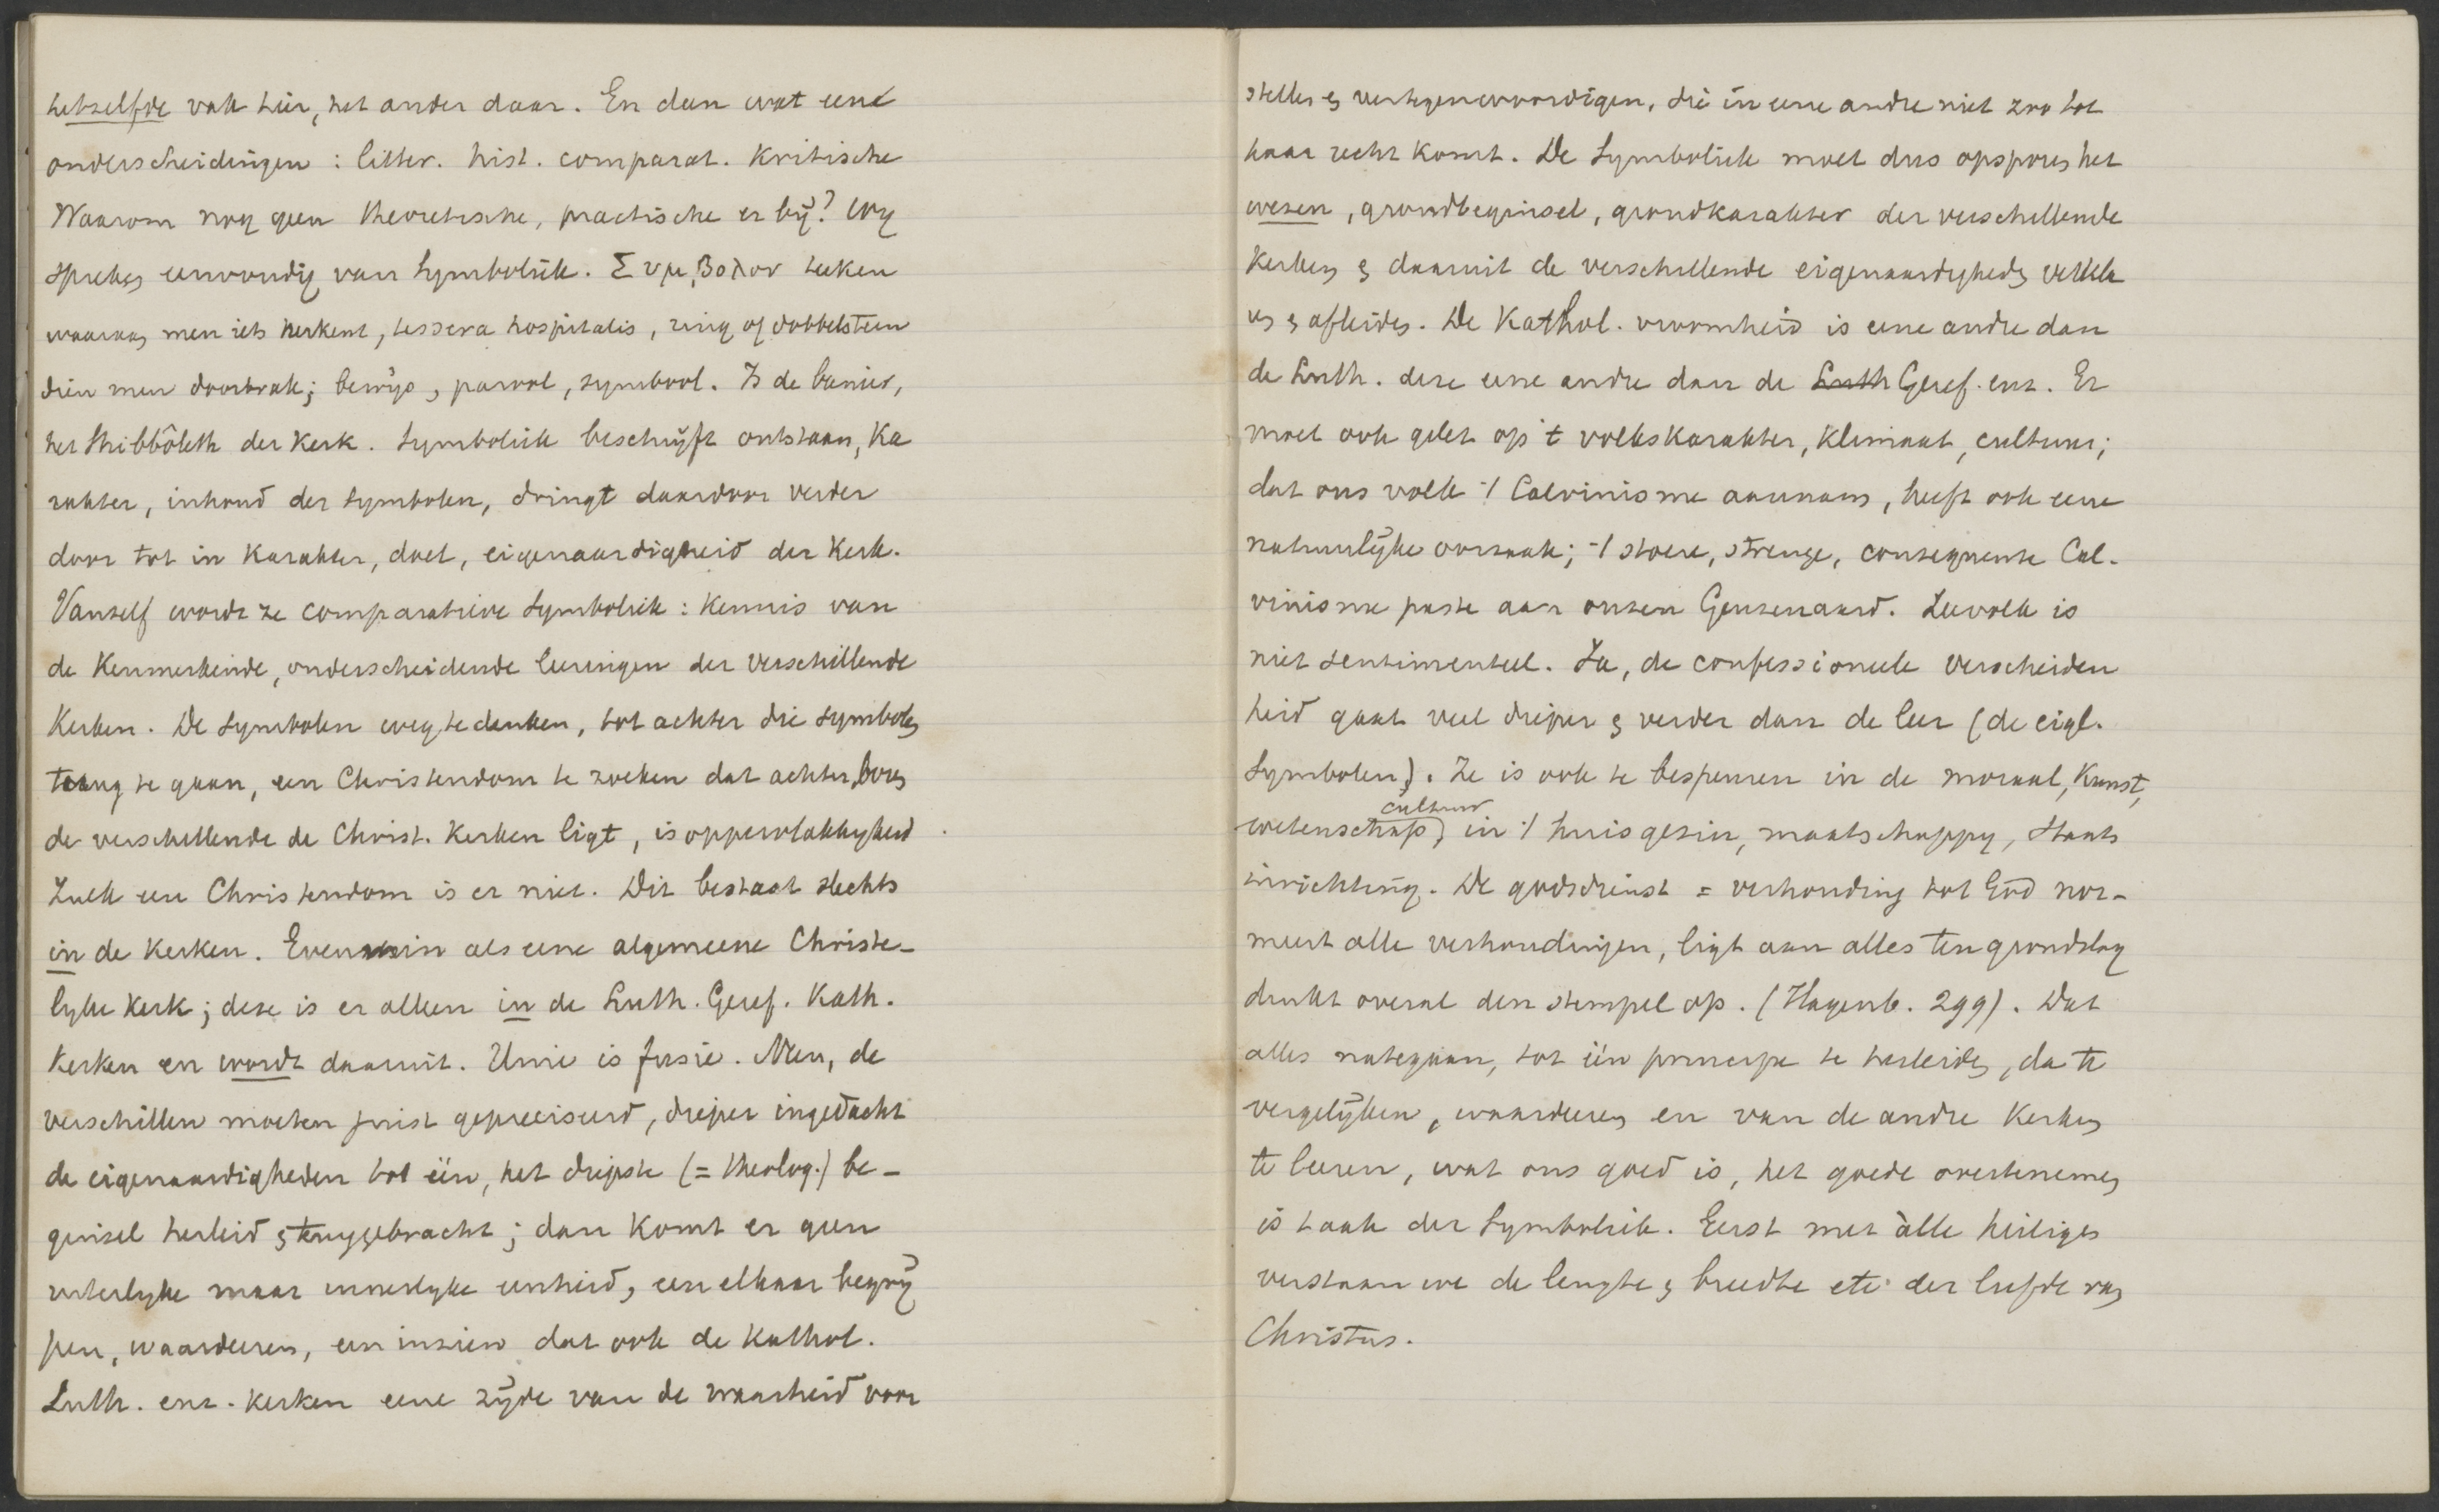 hetzelfde vak hier, het ander daar. En dan wat eene
onderscheidingen: litter. hist. comparat. Kritische
Waarom nog geen theoretische, practische er bij? Wy
spreken eenvoudig van Symboliek. Συμβολον teeken
waaraan men iets herkent, tessera hospitalis, ring of dobbelsteen
dien men doorbrak; bewijs, parool, symbool. Is de banier,
het Shibbôleth der Kerk. Symboliek beschrijft ontstaan, Ka
rakter, inhoud der Symbolen, dringt daardoor verder
door tot in Karakter, doel, eigenaardigheid der Kerk.
Vanzelf wordt ze comparatieve Symboliek: Kennis van
de Kenmerkende, onderscheidende leeringen der verschillende
Kerken. De Symbolen weg te denken, tot achter die symbolen
terug te gaan, een Christendom te zoeken dat achter, boven
de verschillende de Christ. Kerken ligt, is oppervlakkigheid.
Zulk een Christendom is er niet. Dit bestaat slechts
in de Kerken. Evenmin als eene algemeene Christe-
lyke Kerk; deze is er alleen in de Luth. Geref. Kath.
Kerken en wordt daaruit. Unie is fusie. Neen, de
verschillen moeten juist gepreciseerd, dieper ingedacht
de eigenaardigheden tot één, het diepste (= theolog.) be-
ginsel herleid & teruggebracht; dan komt er geen
uiterlyke maar innerlyke eenheid, een elkaar begrij
pen, waardeeren, een inzien dat ook de Kathol.
Luth. enz. Kerken eene zijde van de waarheid voor
stellen & vertegenwoordigen, die in eene andre niet zoo tot
haar recht komt. De Symboliek moet dus opsporen het
wezen, grondbeginsel, grondkarakter der verschillende
Kerken & daaruit de verschillende eigenaardigheden verkla
ren & afleiden. De Kathol. vroomheid is eene andre dan
de Luth. deze eene andre dan de Luth Geref. enz. Er
moet ook gelet op 't volkskarakter, Klimaat, cultuur;
dat ons volk 't Calvinisme aannam, heeft ook eene
natuurlijke oorzaak; 't stoere, strenge, consequente Cal-
vinisme paste aan onzen Geuzenaard. Zeevolk is
niet sentimenteel. Ja, de confessioneele verscheiden
heid gaat veel dieper & verder dan de leer (de eigl.
Symbolen). Ze is ook te bespeuren in de moraal, Kunst,
cultuur
wetenschap, in 't huisgezin, maatschappy, Staats
inrichting. De godsdienst = verhouding tot God nor-
meert alle verhoudingen, ligt aan alles ten grondslag
drukt overal den stempel op. (Hagenb. 299). Dat
alles nategaan, tot één principe te herleiden, da te
vergelijken, waardeeren en van de andre Kerken
te leeren, wat ons goed is, het goede overtenemen
is taak der Symboliek. Eerst met àlle heiligen
verstaan we de lengte & breedte etc. der liefde van
Christus.